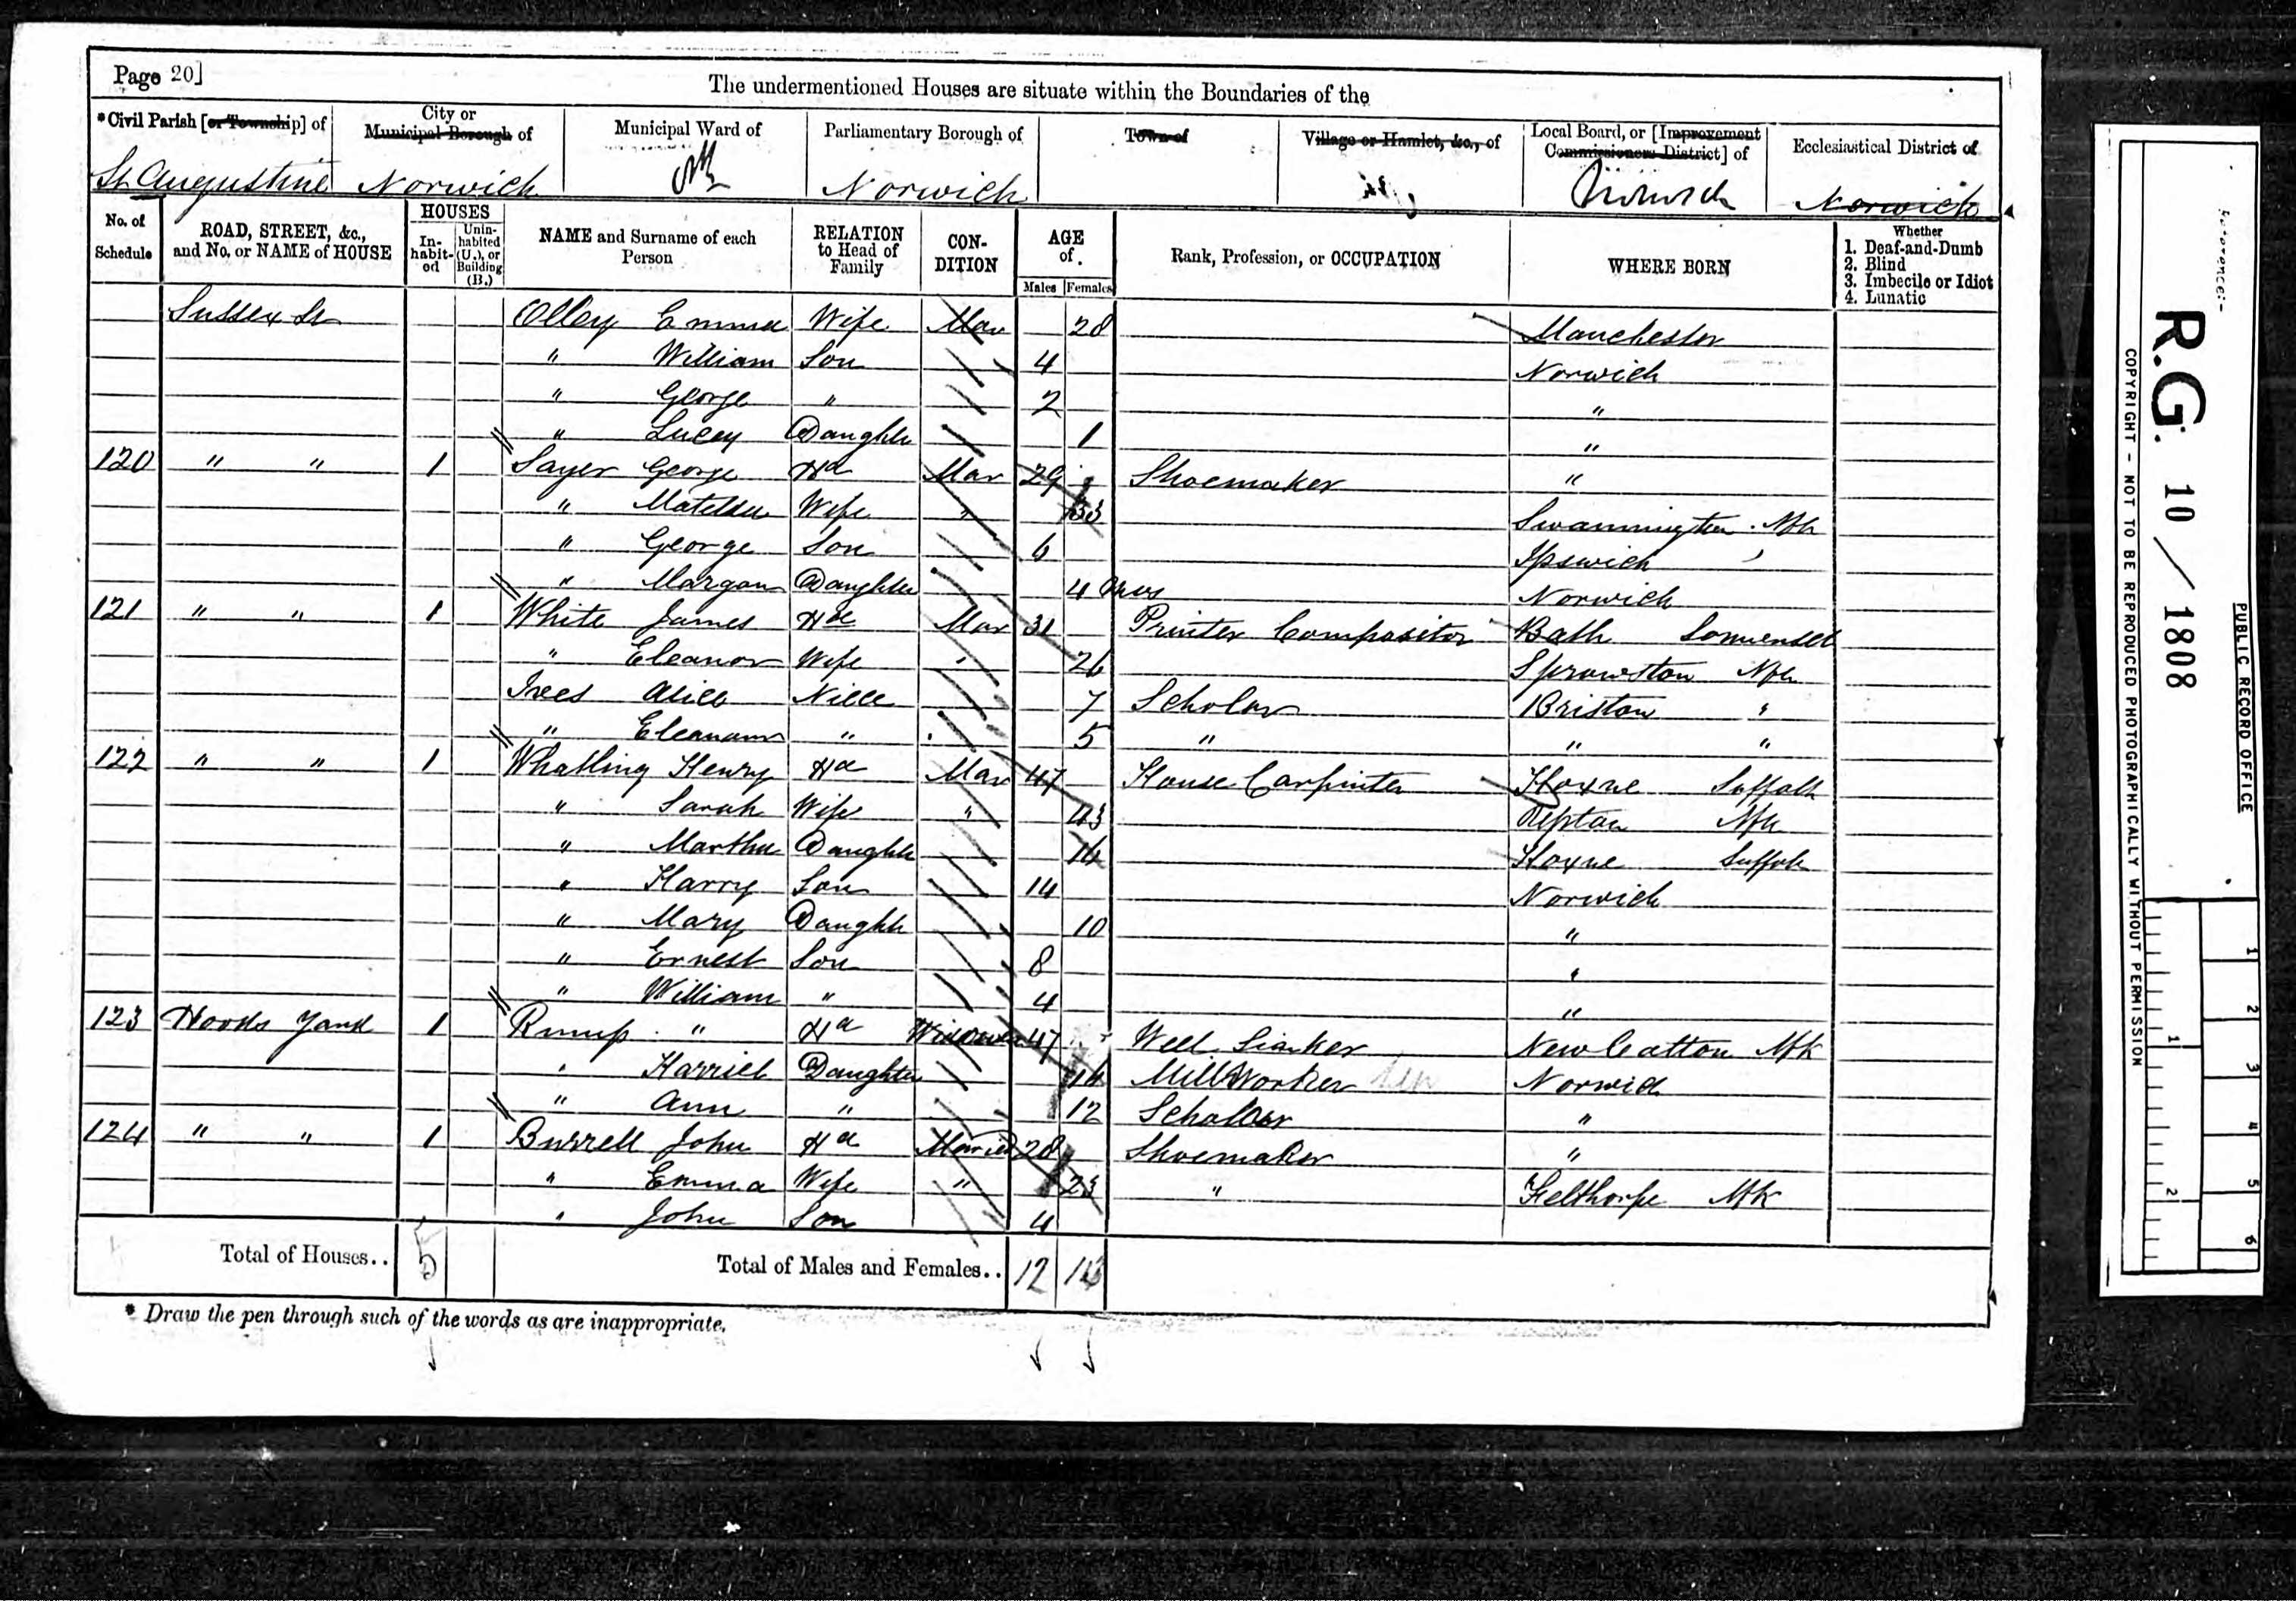 Page 20]
The undermentioned Houses are situate within the Boundaries of the
*Civil Parish [or Township] of
City or Municipal Borough of
Municipal Ward of
Parliamentary Borough of
Town of
Village or Hamlet, &c., of
Local Board, or [Improvement Commissioners District] of
Ecclesiastical District of
St Augustine Norwich Norwich Norwich Norwich
No. of Schedule
ROAD, STREET, &c., and No. or NAME of HOUSE
HOUSES
In-habit-ed
Unin-habited (U.), or Building (B.)
NAME and Surname of each Person
RELATION to Head of Family
CON-DITION
AGE of
Males Females
Rank, Profession, or OCCUPATION
WHERE BORN
Whether
1. Deaf-and-Dumb
2. Blind
3. Imbecile or Idiot
4. Lunatic
Sussex St Olley Emma Wife Mar 28 Manchester
" William Son 4 Norwich
" George " 2 "
" Lucy Daughter 1 "
120 " " 1 Sayer George Hd Mar 29 Shoemaker "
" Matilda Wife " 33 Swannington Nfk
" George Son 6 Ipswich
" Daughter 4 Mos Norwich
121 " " 1 White James Hd Mar 31 Printer Compositor Bath Somerset
" Eleanor Wife " 26 Sprowston Nfk
Alice Niece 7 Scholar Briston "
" " 5 " " "
122 " " 1 Whatling Henry Hd Mar 47 House Carpinter Hoxne Suffolk
" Sarah Wife " 43 Nfk
" Martha Daughter 16 Hoxne Suffolk
" Harry Son 14 Norwich
" Mary Daughter 10 "
" Ernest Son 8 "
" William " 4 "
123 Yard 1 Rump " Hd Widower 47 Well Sinker New Catton Nfk
" Harriet Daughter Mill Worker Norwich
" Ann " 12 Scholar "
124 " " 1 Burrell John Hd Married 28 Shoemaker "
" Emma Wife " 23 " Felthorpe Nfk
" John Son 4
Total of Houses.. 5 Total of Males and Females.. 12
* Draw the pen through such of the words as are inappropriate.
Reference:-
R.G. 10 / 1808
PUBLIC RECORD OFFICE
COPYRIGHT - NOT TO BE REPRODUCED PHOTOGRAPHICALLY WITHOUT PERMISSION
1 2
1 2 3 4 5 6